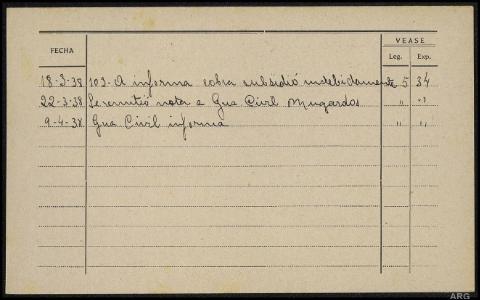 VEASE
FECHA Leg. Exp.
18-3-38 103-A informa cobra subsidió indebidamente 5 34
22-3-38 Se remitió nota a Gua Civil Mugardos " "
9-4-38 Gua Civil informa " "
ARG